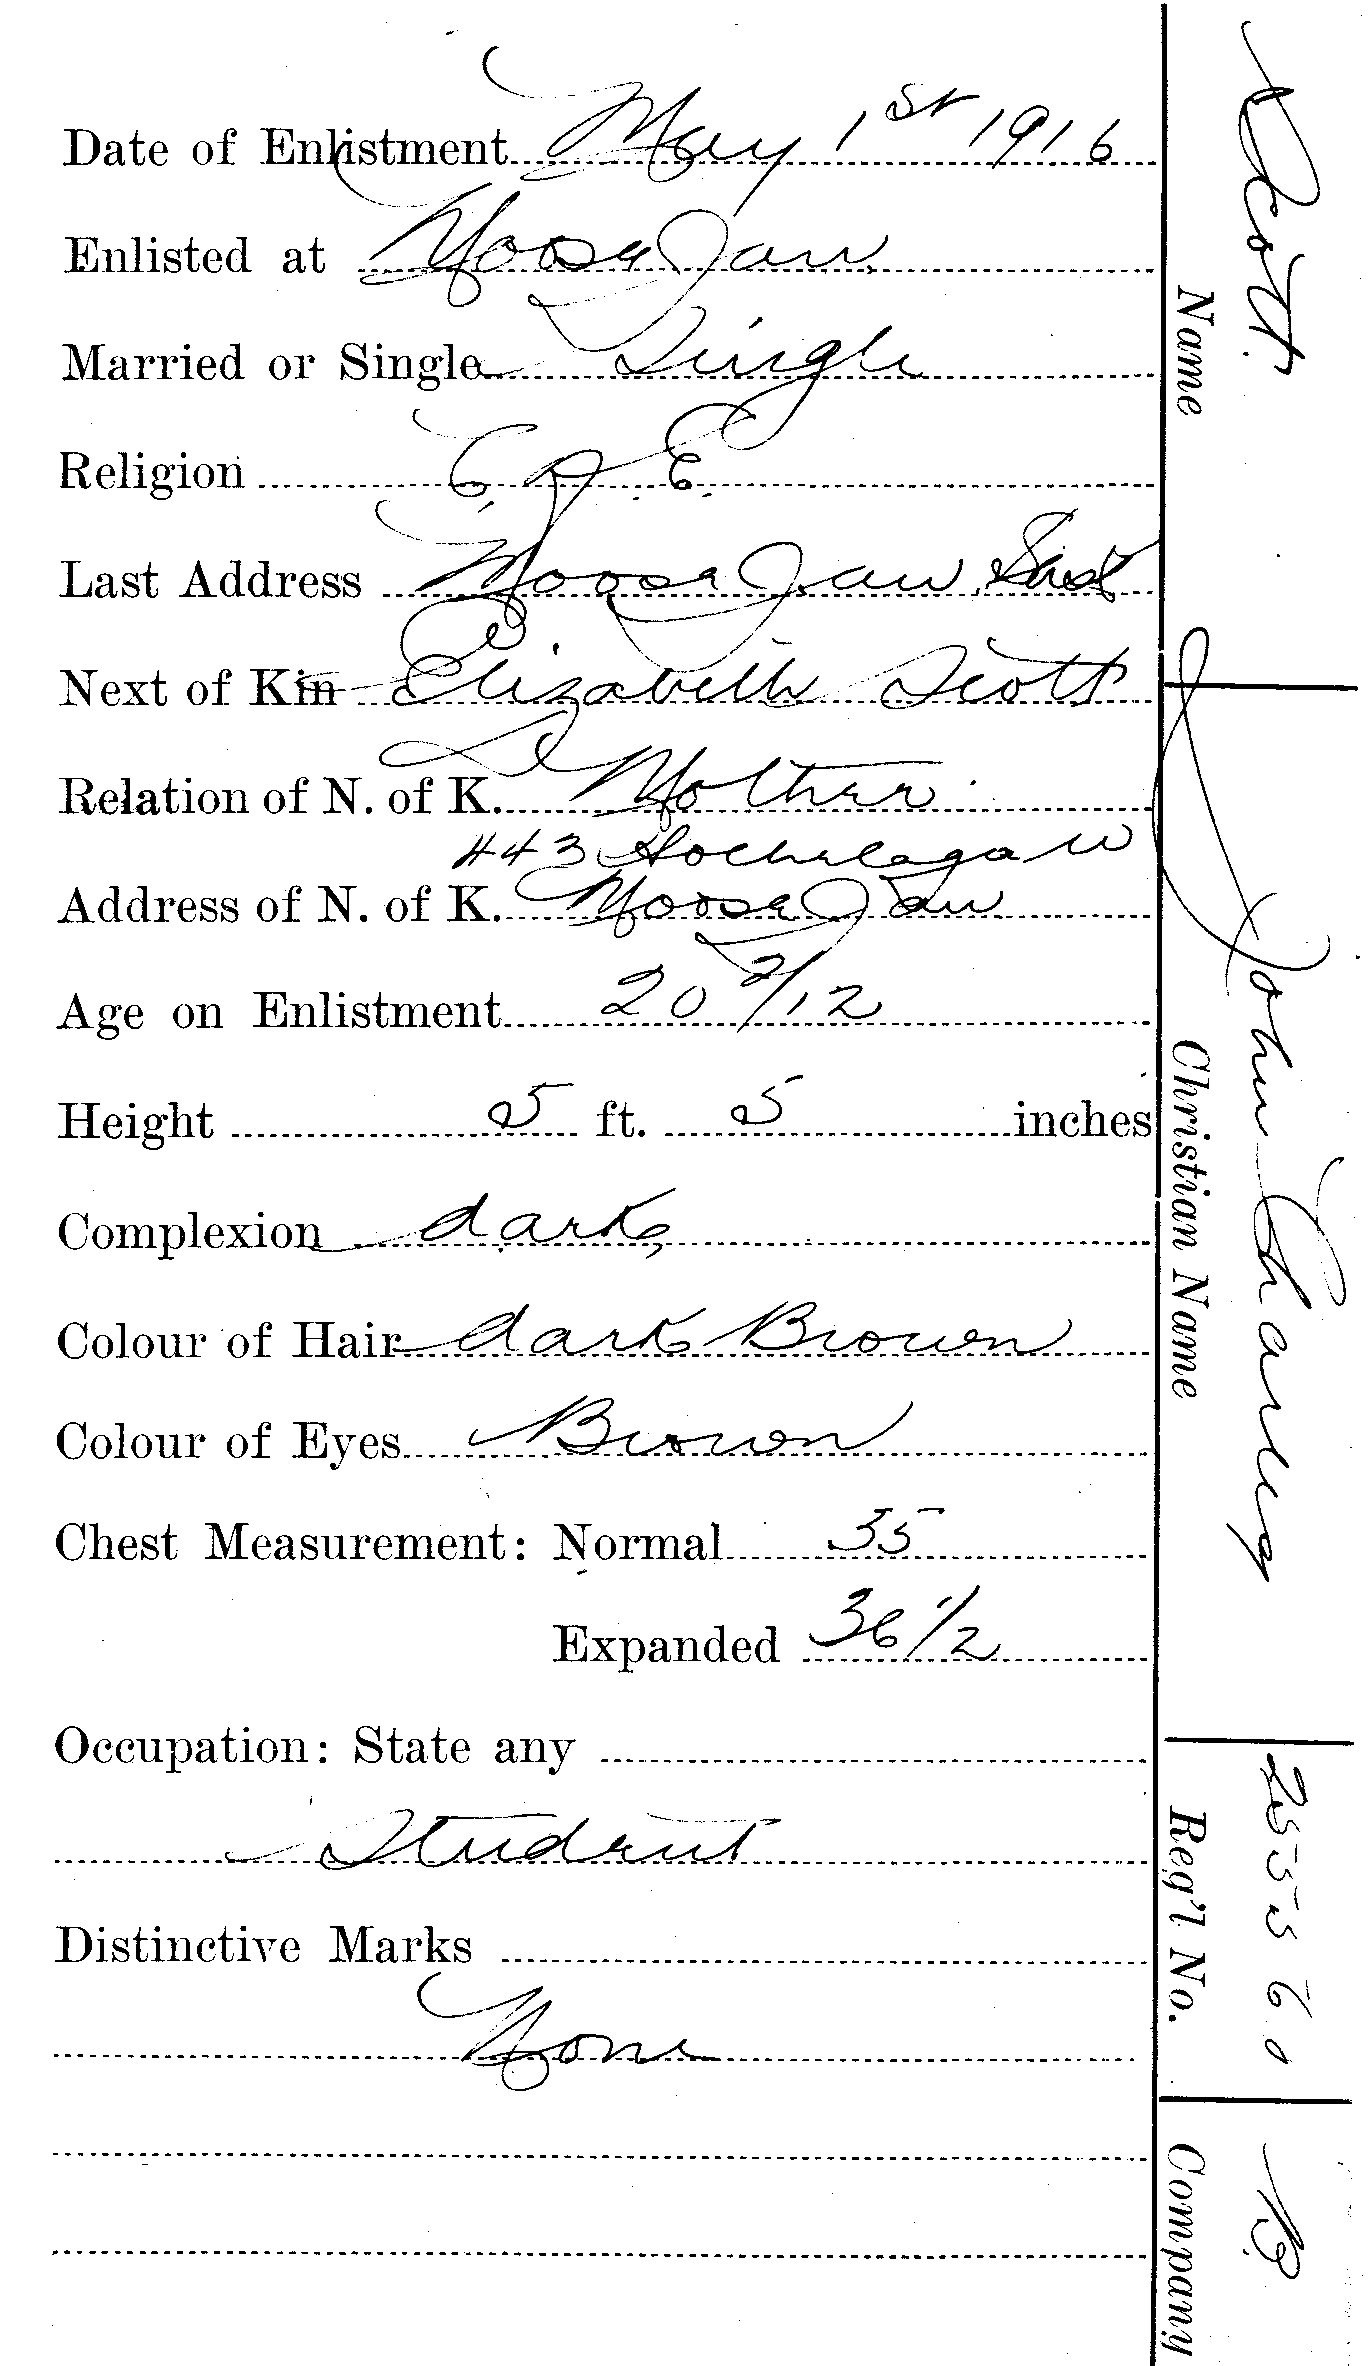 Date of Enlistment May 1st 1916
Enlisted at Moose Jaw.
Married or Single Single
Religion C. of E.
Last Address Moose Jaw Sask
Next of Kin Elizabeth Scott
Relation of N. of K. Mother
443 Hochelaga W
Address of N. of K. Moose Jaw
Age on Enlistment 20 2/12
Height 5 ft. 5 inches
Complexion dark
Colour of Hair dark Brown
Colour of Eyes Brown
Chest Measurement: Normal 35
Expanded 36 1/2
Occupation: State any
Student
Distinctive Marks
None
Scott.
Name
John Charley
Christian Name
255560
Reg'l No.
B
Company